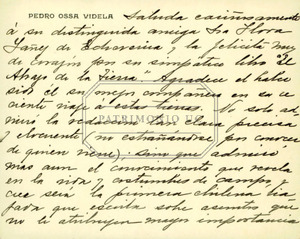 PEDRO OSSA VIDELA Saluda cariñosamente
á su distinguida amiga Sra Flora
Yañez de Echeverria y la felicita muy
de corazón por su simpatico libro "El
Abrazo de la Tierra". Agradece el haber
sido él su mejor compañero en su re
ciente viaje á estas tierras. No solo ad
miró la redacción clara precisa
y elocuente (no estrañándose por conocer
de quien viene), sino que admiró
mas aun el conocimiento que revela
en la vida y costumbres de campo,
cree será la primera chilena via
jada que escriba sobre asuntos que
no le atribuyen mayor importancia
PATRIMONIO UC